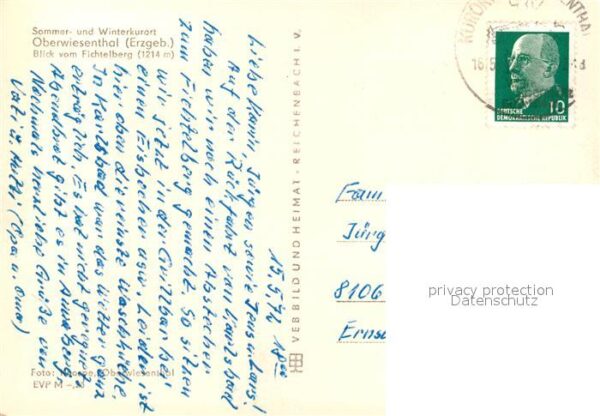 Sommer- und Winterkurort
Oberwiesenthal (Erzgeb.)
Blick vom Fichtelberg (1214 m)
15.5.72 18⁰⁰
Liebe Karin, Jürgen sowie Jens u. Claus!
Auf der Rückfahrt von Karlsbad
haben wir noch einen Abstecher
zum Fichtelberg gemacht. So sitzen
wir jetzt in der Grillbar bei
einen Eisbecher usw. Leider ist
hier oben die reinste Waschküche.
In Karlsbad war das Wetter ganz
erträglich. Es hat nicht geregnet.
Abendbrot gibt es in Annaberg.
Nochmals herzliche Grüße von
Vati u. Mutti (Opa u. Oma)
Foto: Oberwiesenthal
EVP M -,20
VEB BILD UND HEIMAT · REICHENBACH I. V.
16.5
10
DEUTSCHE
DEMOKRATISCHE REPUBLIK
Fam
Jürg
8106
Erns
privacy protection
Datenschutz